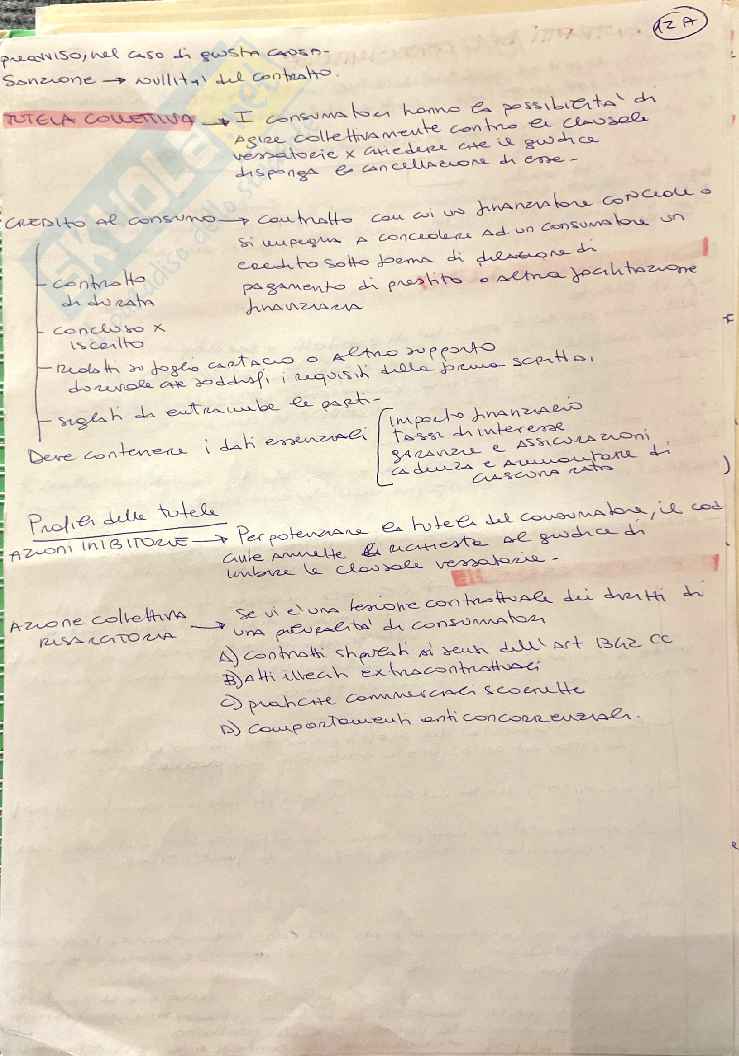 12A
preavviso, nel caso di giusta causa-
Sanzione → nullità del contratto.
TUTELA COLLETTIVA → I consumatori hanno la possibilità di
agire collettivamente contro le clausole
vessatorie x chiedere che il giudice
disponga la cancellazione di esse-
CREDITO AL CONSUMO → contratto con cui un finanziatore concede o
si impegna a concedere ad un consumatore un
credito sotto forma di dilazione di
pagamento di prestito o altra facilitazione
finanziaria
- contratto
di durata
- concluso x
iscritto
- redatti su foglio cartaceo o altro supporto
durevole che soddisfi i requisiti della forma scritta.
- siglati da entrambe le parti-
Deve contenere i dati essenziali
importo finanziario
tassi di interesse
garanzie e assicurazioni
cadenza e ammontare di
ciascuna rata
Profili delle tutele
AZIONI INIBITORIE → Per potenziare la tutela del consumatore, il cod
civile ammette la richiesta al giudice di
inibire le clausole vessatorie-
AZIONE COLLETTIVA
RISARCITORIA → Se vi è una lesione contrattuale dei diritti di
una pluralità di consumatori
A) contratti stipulati ai sensi dell'art 1342 CC
B) atti illeciti extracontrattuali
C) pratiche commerciali scorrette
D) comportamenti anticoncorrenziali.
SKUOLA.net